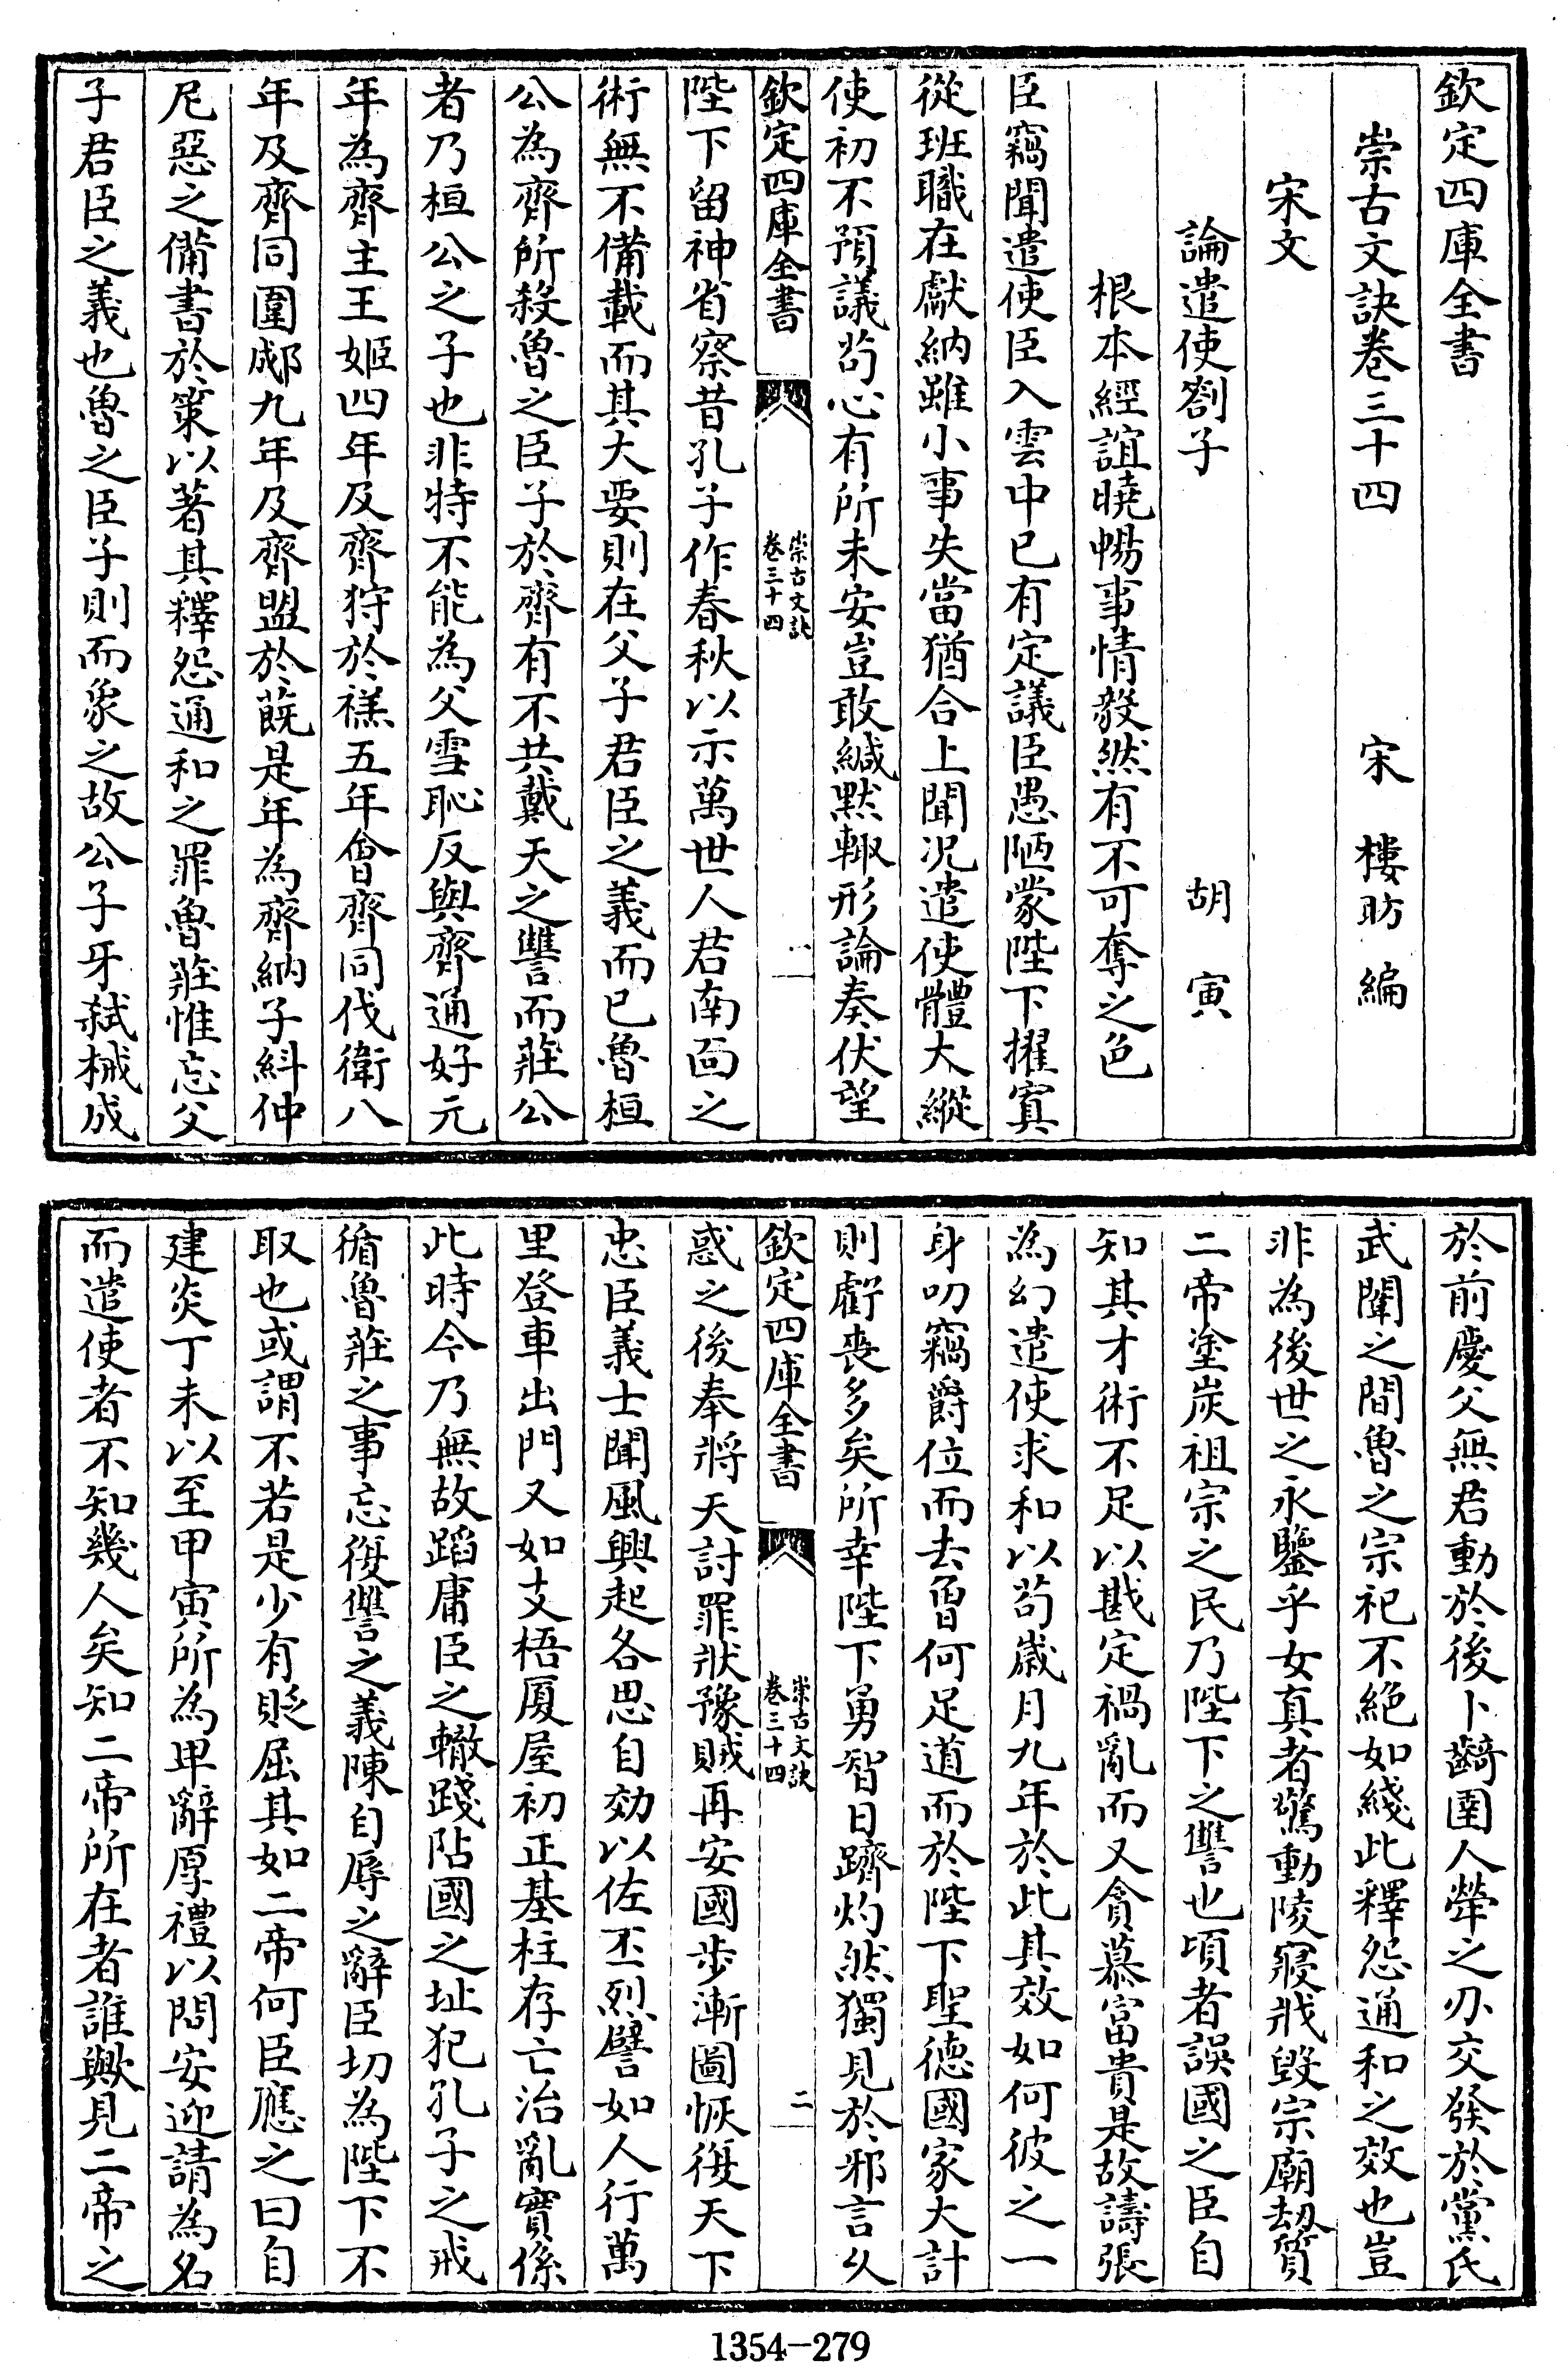 欽定四庫全書
崇古文訣卷三十四
宋 樓昉 編
宋文
論遣使劄子
胡寅
根本經誼曉暢事情毅然有不可奪之色
臣竊聞遣使臣入雲中已有定議臣愚陋蒙陛下擢寘
從班職在獻納雖小事失當猶合上聞况遣使體大縱
使初不預議苟心有所未安豈敢緘黙輙形論奏伏望
欽定四庫全書
崇古文訣
卷三十四
一
陛下留神省察昔孔子作春秋以示萬世人君南面之
術無不備載而其大要則在父子君臣之義而已魯桓
公為齊所殺魯之臣子於齊有不共戴天之讐而莊公
者乃桓公之子也非特不能為父雪恥反與齊通好元
年為齊主王姬四年及齊狩於禚五年會齊同伐衛八
年及齊同圍郕九年及齊盟於蔇是年為齊納子糾仲
尼惡之備書於策以著其釋怨通和之罪魯莊惟忘父
子君臣之義也魯之臣子則而象之故公子牙弑械成
於前慶父無君動於後卜齮圉人犖之刃交發於黨氏
武闈之間魯之宗祀不絶如綫此釋怨通和之效也豈
非為後世之永鑒乎女真者驚動陵寢戕毁宗廟刼質
二帝塗炭祖宗之民乃陛下之讐也頃者誤國之臣自
知其才術不足以戡定禍亂而又貪慕富貴是故譸張
為幻遣使求和以苟歲月九年於此其效如何彼之一
身叨竊爵位而去曾何足道而於陛下聖德國家大計
則虧喪多矣所幸陛下勇智日躋灼然獨見於邪言久
欽定四庫全書
崇古文訣
卷三十四
二
惑之後奉將天討罪狀豫賊再安國步漸圖恢復天下
忠臣義士聞風興起各思自効以佐丕烈譬如人行萬
里登車出門又如支梧厦屋初正基柱存亡治亂實係
此時今乃無故蹈庸臣之轍踐阽國之址犯孔子之戒
循魯莊之事忘復讐之義陳自辱之辭臣切為陛下不
取也或謂不若是少有貶屈其如二帝何臣應之曰自
建炎丁未以至甲寅所為卑辭厚禮以問安迎請為名
而遣使者不知幾人矣知二帝所在者誰歟見二帝之
1354-279